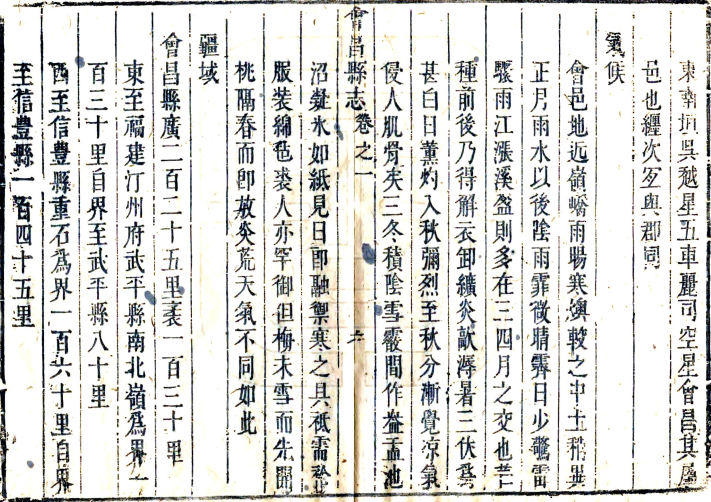 東南垣吳越星五車麗司空星會昌其屬
邑也纏次歪與郡同
氣候
會邑地近嶺嶠雨暘寒燠較之中土稍異
正月雨水以後陰雨霏微晴霽日少驚雷
驟雨江漲溪盈則多在三四月之交也芒
種前後乃得解衣卸纊炎歊溽暑三伏為
甚白日薰灼入秋彌烈至秋分漸覺涼氣
侵人肌骨矣三冬積陰雪霰間作盎盂池
會昌縣志 卷之一 六
沼凝氷如紙見日卽融禦寒之具祗需袷
服裝綿毡裘人亦罕御但梅未雪而先開
桃隔春而卽敷炎荒天氣不同如此
疆域
會昌縣廣二百二十五里袤一百三十里
東至福建汀州府武平縣南北嶺爲界一
百三十里自界至武平縣八十里
西至信豊縣重石爲界一百六十里自界
至信豊縣一百四十五里